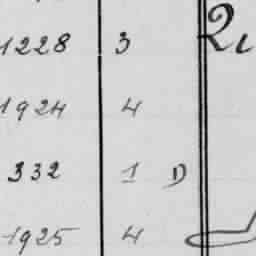 1228 3
1924 4
332 1 D
1925 4